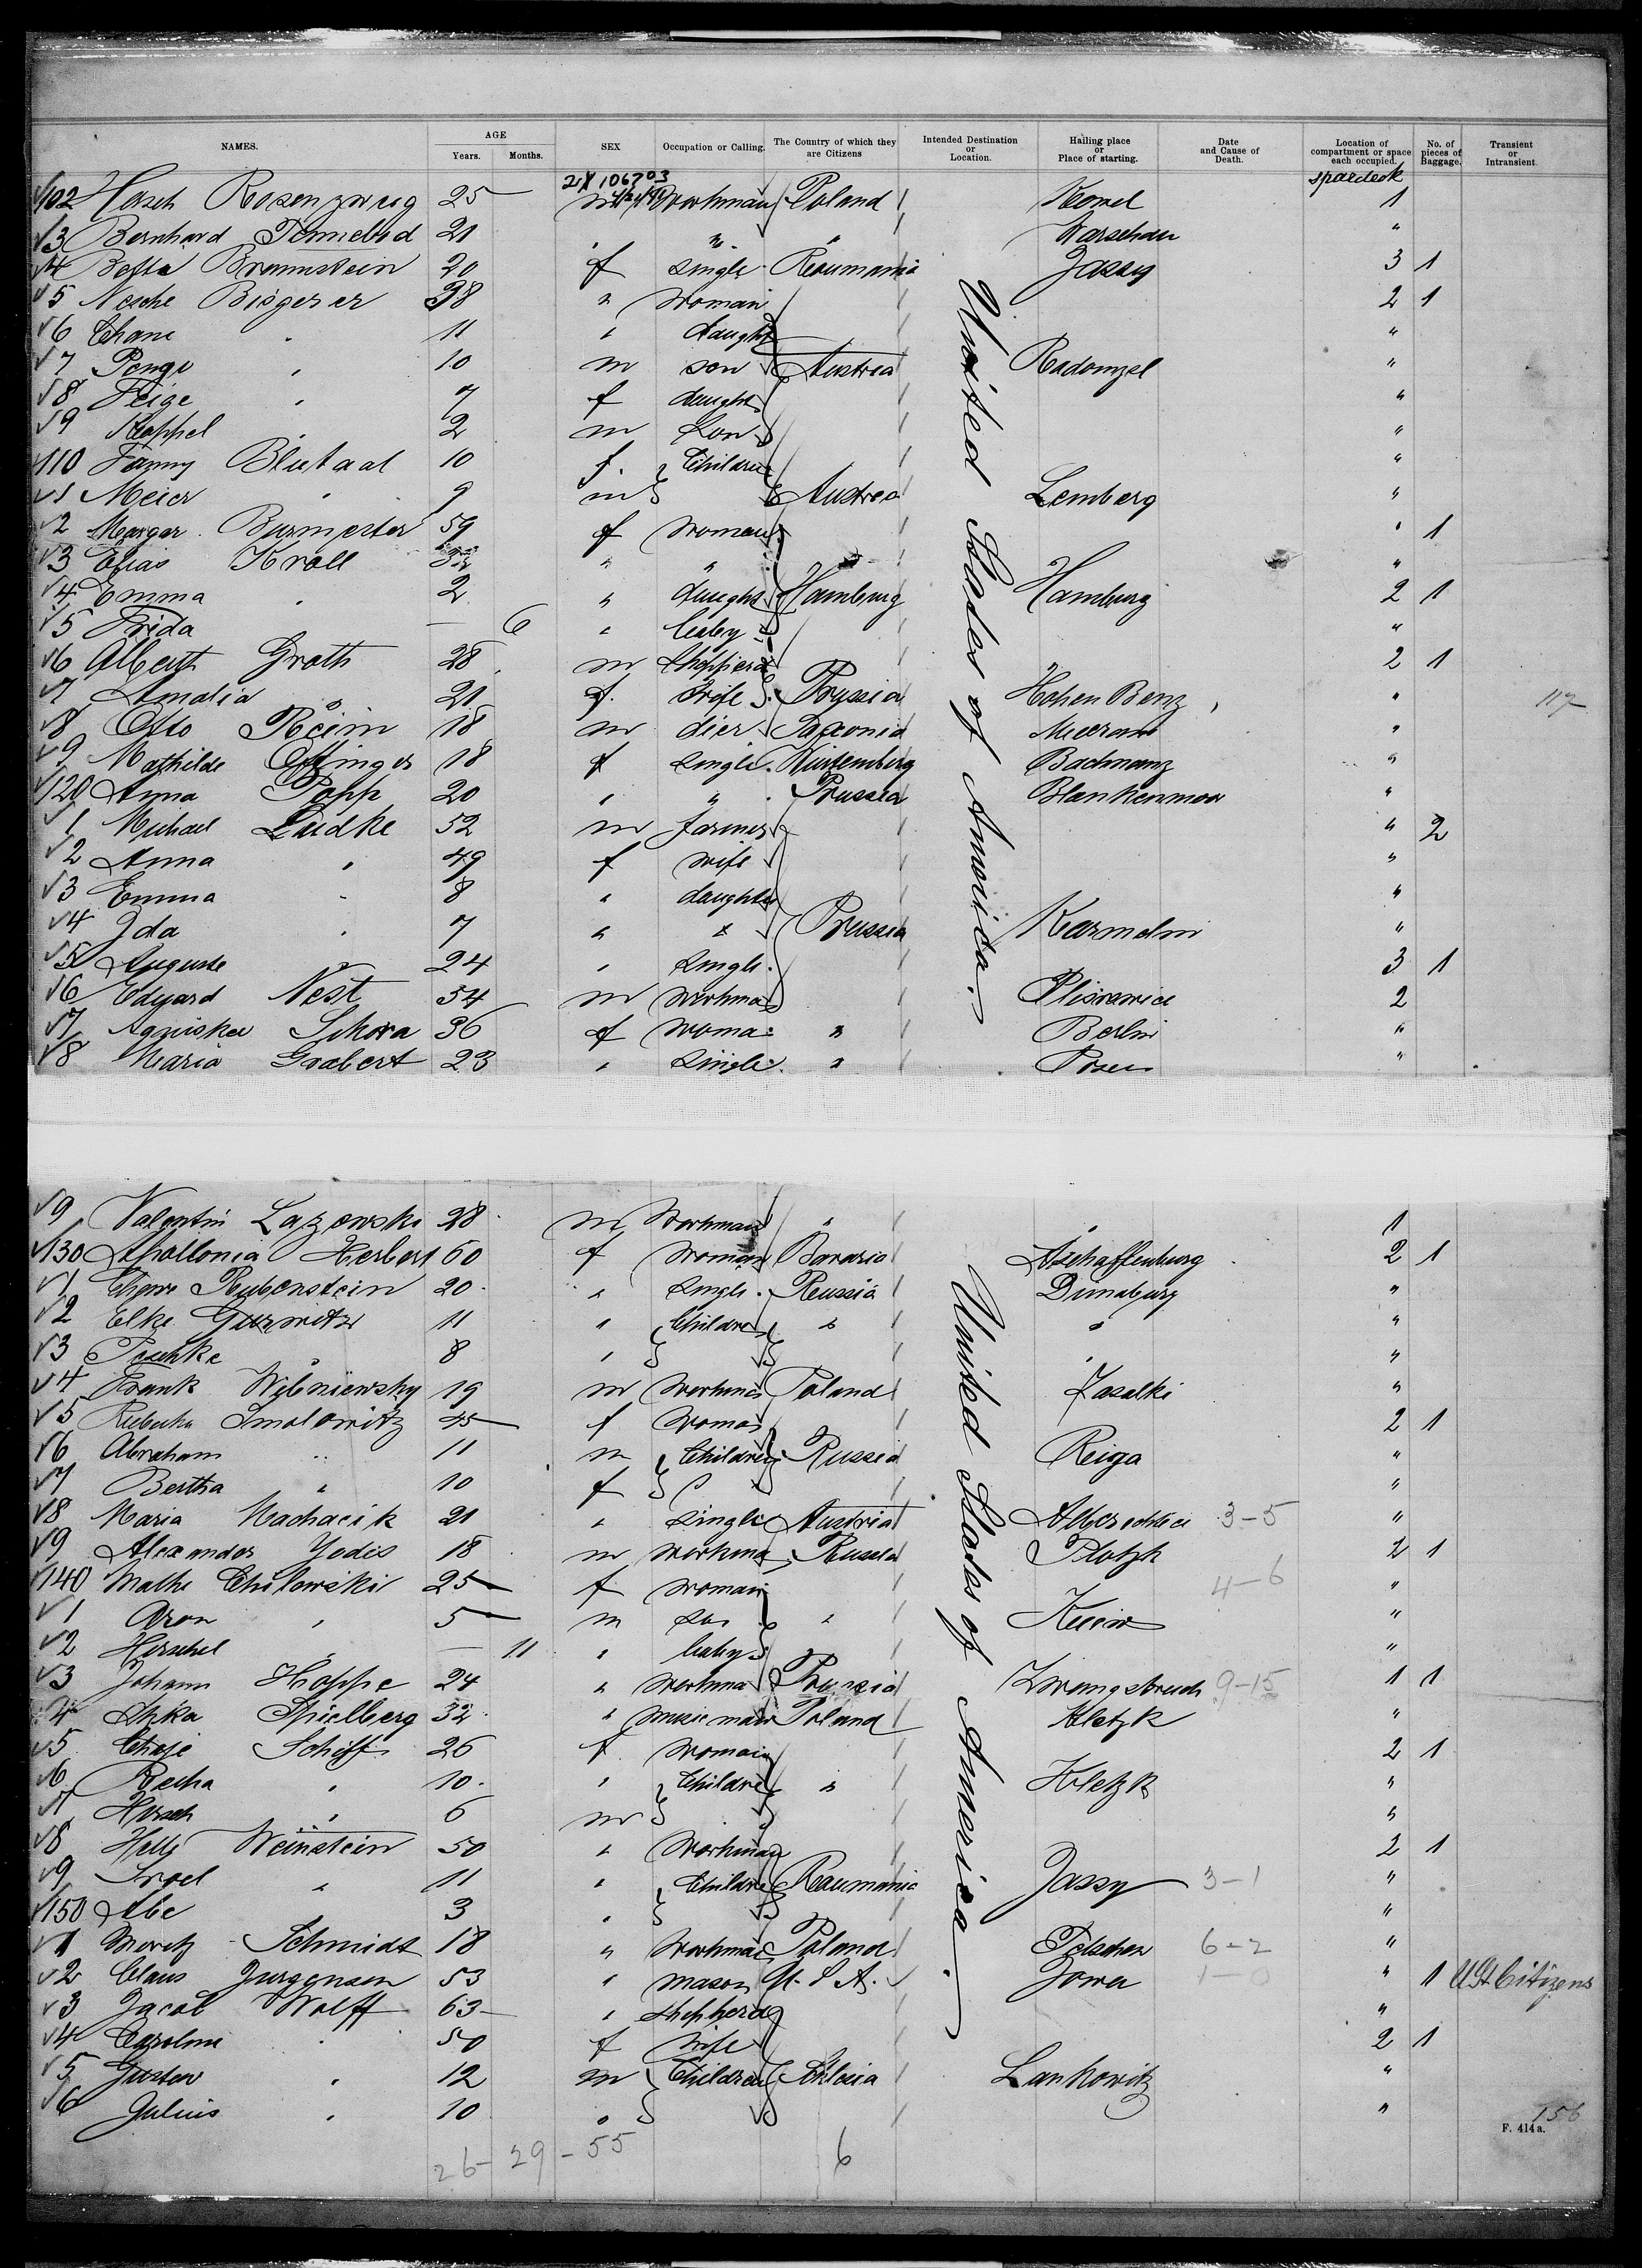 NAMES. AGE Years. Months. SEX Occupation or Calling. The Country of which they are Citizens Intended Destination or Location. Hailing place or Place of starting. Date and Cause of Death. Location of compartment or space each occupied. No. of pieces of Baggage. Transient or Intransient.
2X 106703 spardeck
102 Hersch Rosenzweig 25 m Workman Poland Kowel 1
3 Bernhard 21 " " " Warschau "
4 Betta Braunstein 20 f single Roumania Jassy 3 1
5 Nesche 38 " woman 2 1
6 Chane " 11 " daught "
7 " 10 m son Austria Radomysl "
8 Feige " 7 f daught "
9 Keppel " 2 m son "
110 Fanny Blutaal 10 f. Children "
1 Meier " 9 m Austria Lemberg "
2 Margar. Burmester 59 f woman " 1
3 Kroll 32 " " "
4 Emma " 2 " daught Hamburg Hamburg 2 1
5 Frida — 6 " baby "
6 Albert Groth 28 m 2 1
7 Amalia " 21 f. wife Pryssia Hohen Benz " 117
8 Otto Reim 18 m dier Saxonia Meerane "
9 Mathilde 18 f single Würtemberg "
120 Anna Popp 20 " " Prussia Blankenmoor "
1 Michael Ludke 52 m farmer " 2
2 Anna " 49 f wife "
3 Emma " 8 " daughter "
4 Ida " 7 " " Prussia "
5 Auguste " 24 " single 3 1
6 Eduard Nest 54 m workma 2
7 Agniska Sikora 36 f woma " Berlin "
8 Maria Grabert 23 " single " Posen "
United States of America.
9 Valentin Lazewski 28 m Workman " " 1
130 Apollonia Herbert 60 f woman Bavaria Aschaffenburg 2 1
1 Rubenstein 20 " single Russia Dunaburg "
2 Elke Gurwitz 11 " Children " " "
3 " 8 " " "
4 Frank Wisniewsky 19 m workman Poland "
5 Rebecka Smolowitz 45 f woman 2 1
6 Abraham " 11 m Children Russia Reiga "
7 Bertha " 10 f "
8 Maria Machacik 21 " single Austria 3-5 "
9 Alexander Yodis 18 m workma Russia Plotzk 2 1
140 Malke Chilewski 25 f woman 4-6 "
1 Aron " 5 m son " "
2 Herschel — 11 " baby "
3 Johann Hoppe 24 " workma Prussia Zwangsbruch 9-15 1 1
4 Spielberg 32 " musicman Poland Kletzk "
5 Chaje Schiff 26 f woman 2 1
6 " 10 " Childre " Kletzk "
7 Hirsch " 6 m "
8 Weinstein 50 " Workman 2 1
9 Sroel " 11 " Childre Roumania Jassy 3-1 "
150 Abe " 3 " "
1 Moritz Schmidt 18 " Workman Poland 6-2 "
2 Claus Jurgensen 53 " mason U.S.A. Jowa 1-0 " 1 USt Citizens
3 Jacob Wolff 63 " shepherd "
4 Caroline " 50 f wife 2 1
5 Gustav " 12 m Children Silesia Lankowitz "
6 Julius " 10 " "
United States of America.
156
F. 414a.
26- 29 - 55 6